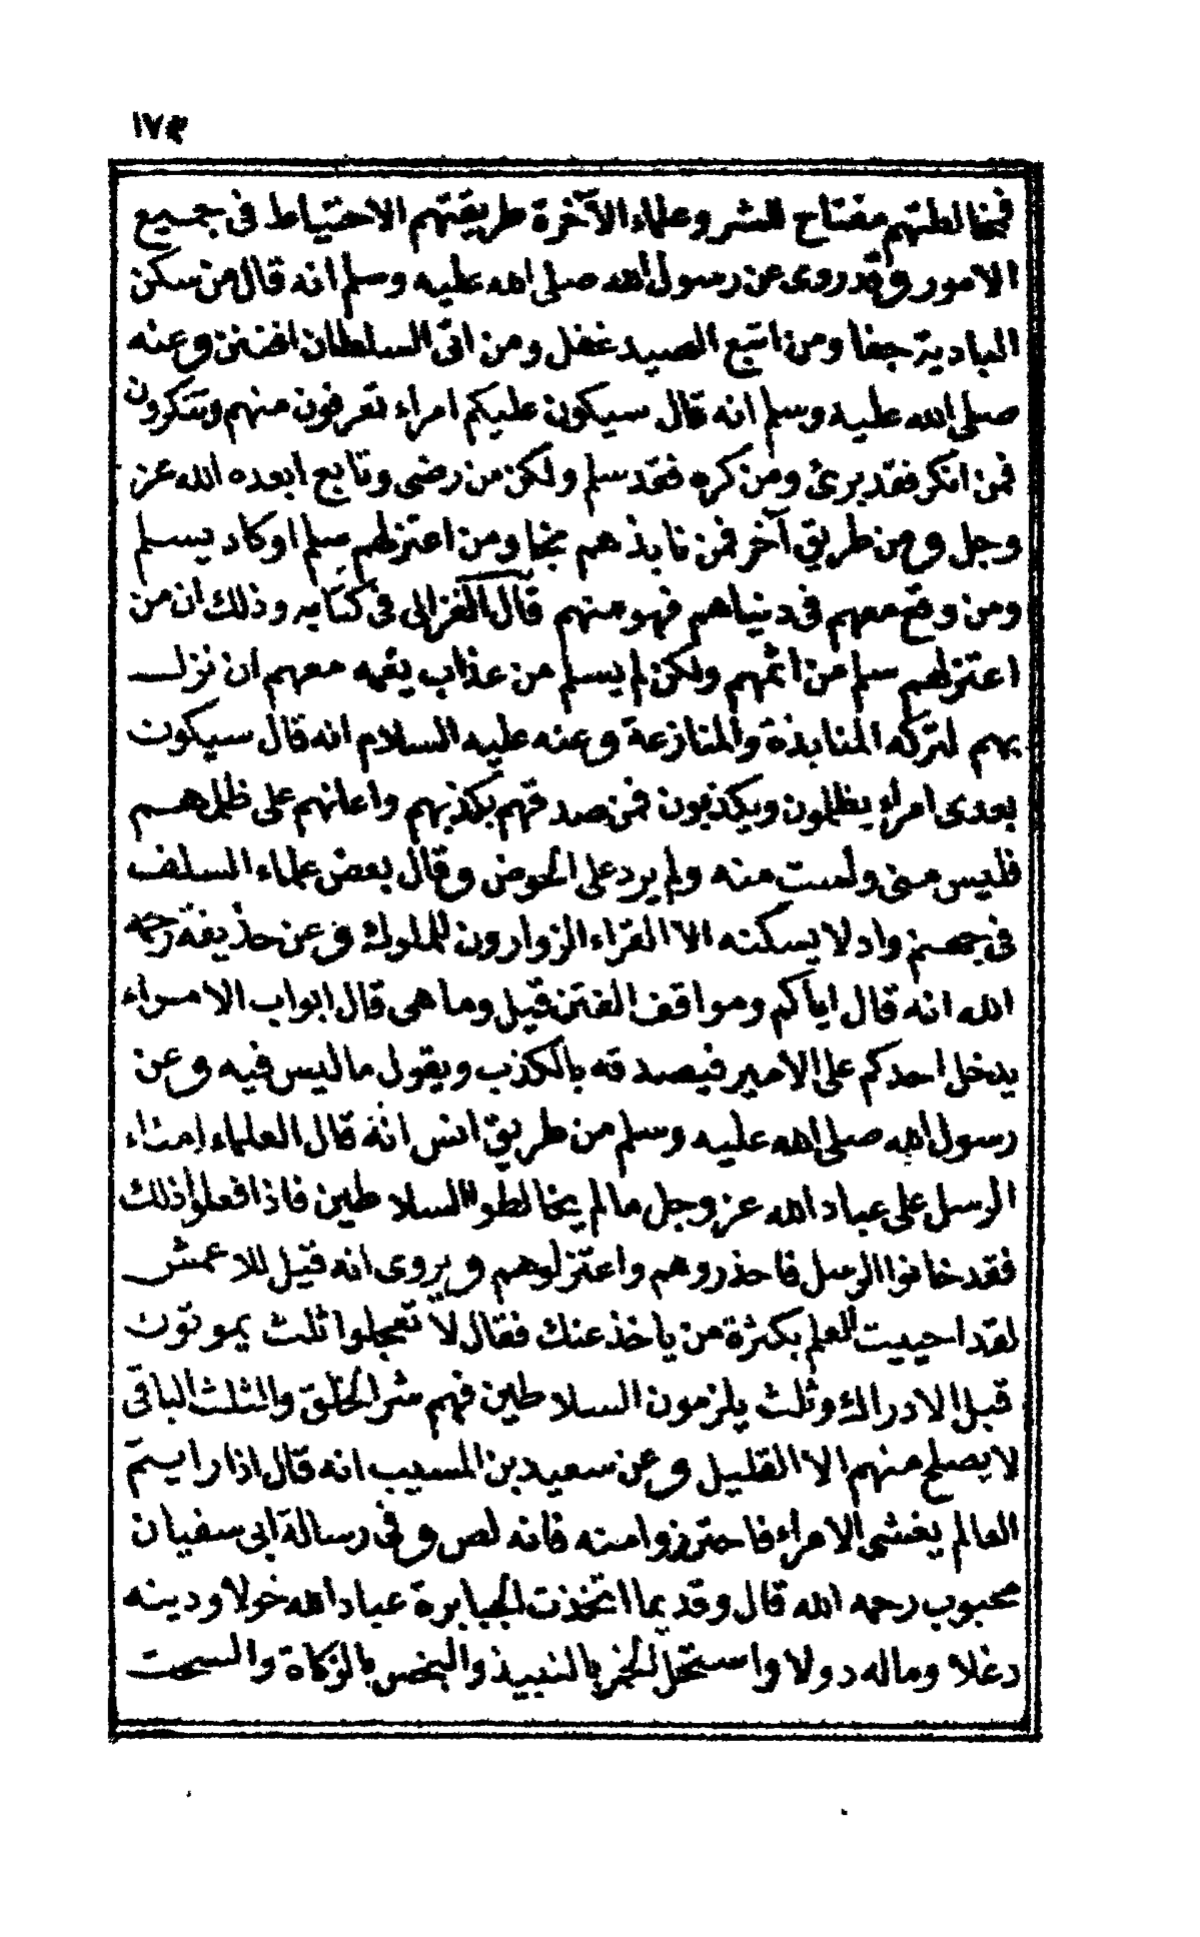 ١٧٣
فمخالطتهم مفتاح للشر وعلماء الآخرة طريقتهم الاحتياط فى جميع
الامور وقد روى عن رسول الله صلى الله عليه وسلم انه قال من سكن
البادية جفا ومن اتبع الصيد غفل ومن اتى السلطان افتنن وعنه
صلى الله عليه وسلم انه قال سيكون عليكم امراء تعرفون منهم وتنكرون
فمن انكر فقد برئ ومن كره فقد سلم ولكن من رضى وتابع ابعده الله عز
وجل ومن طريق آخر فمن نابذهم نجا ومن اعتزلهم سلم اوكاد يسلم
ومن وقع معهم فى دنياهم فهو منهم قال الغزالى فى كتابه وذلك ان من
اعتزلهم سلم من اثمهم ولكن لم يسلم من عذاب يعمه معهم ان نزل
بهم لتركه المنابذة والمنازعة وعنه عليه السلام انه قال سيكون
بعدى امراء يظلمون ويكذبون فمن صدقهم بكذبهم واعانهم على ظلمهم
فليس منى ولست منه ولم يرد على الحوض وقال بعض علماء السلف
فى جهنم واد لا يسكنه الا القراء الزوارون للملوك وعن حذيفة رحمه
الله انه قال اياكم ومواقف الفتن قيل وما هى قال ابواب الامراء
يدخل احدكم على الامير فيصدقه بالكذب ويقول ما ليس فيه وعن
رسول الله صلى الله عليه وسلم من طريق انس انه قال العلماء امناء
الرسل على عباد الله عز وجل ما لم يخالطوا السلاطين فاذا فعلوا ذلك
فقد خانوا الرسل فاحذروهم واعتزلوهم ويروى انه قيل للاعمش
لقد احييت العلم بكثرة من ياخذ عنك فقال لا تعجلوا ثلث يموتون
قبل الادراك وثلث يلزمون السلاطين فهم شر الخلق والثلث الباقى
لا يصلح منهم الا القليل وعن سعيد بن المسيب انه قال اذا رايتم
العالم يغشى الامراء فاحترزوا منه فانه لص وفى رسالة ابى سفيان
محبوب رحمه الله قال وقديما اتخذت الجبابرة عباد الله خولا ودينه
دغلا وماله دولا واستحل الخمر بالنبيذ والبخس بالزكاة والسحت